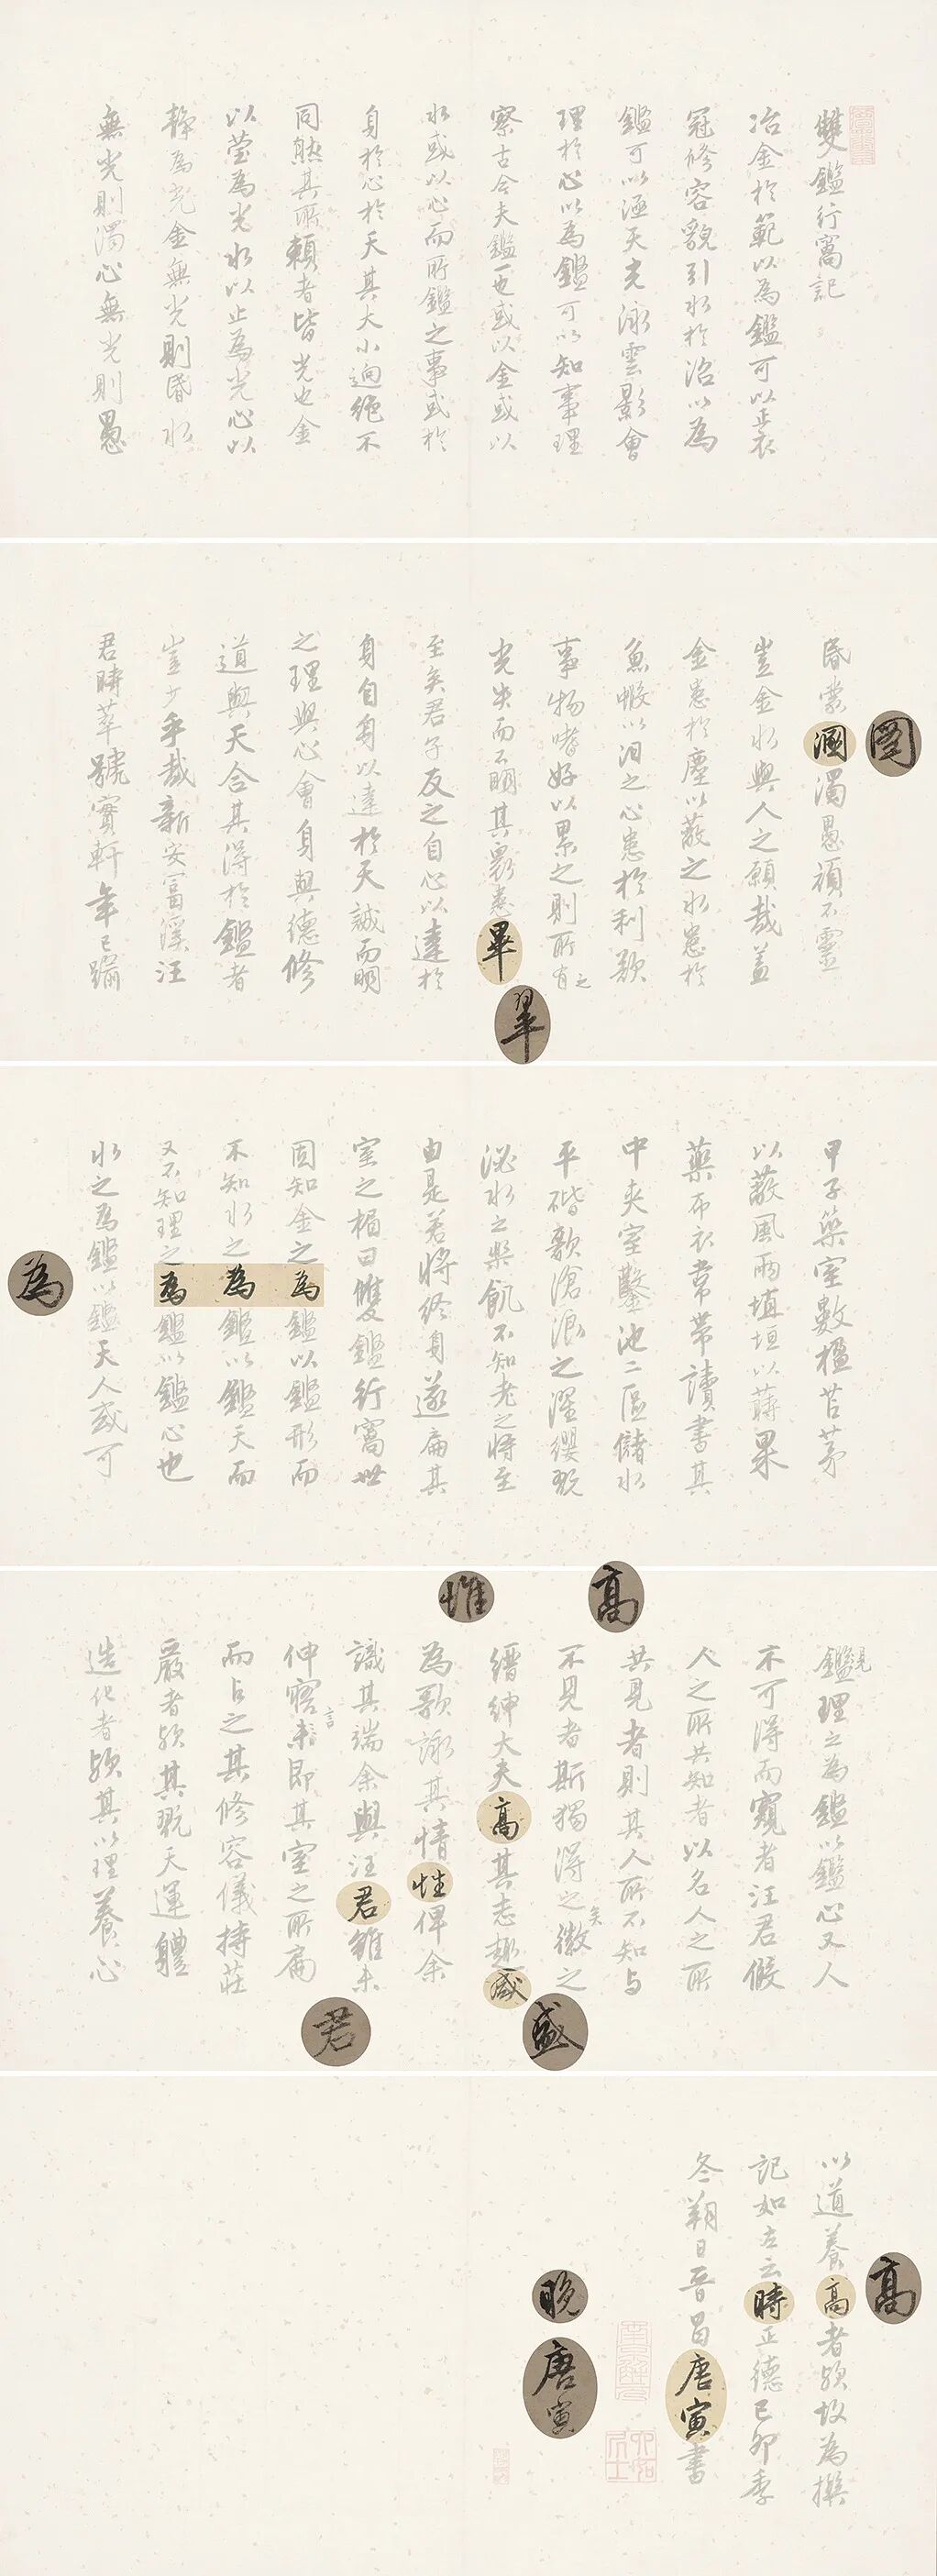 雙鑑行窩記
冶金於範以為鑑可以正衣
冠修容貌引水於沼以為
鑑可以涵天光泳雲影會
理於心以為鑑可以知事理
察古今夫鑑一也或以金或以
水或以心而所鑑之事或於
身於心於天其大小迥絕不
同然其所賴者皆光也金
以瑩為光水以止為光心以
靜為光金無光則昏水
無光則濁心無光則愚
昏蒙溷濁愚頑不靈
豈金水與人之願哉蓋
金患於塵以蔽之水患於
魚蝦以汩之心患於利欲
事物嗜好以累之則所有之
光失而不明其衆患畢
至矣君子反之自心以達於
身自身以達於天誠而明
之理與心會身與德修
道與天合其得於鑑者
豈少乎哉新安富溪汪
君時萃號實軒年已踰
甲子築室數楹苫茅
以蔽風雨埴垣以蒔果
藥布衣常帶讀書其
中夾室鑿池二區儲水
平階歌滄浪之濯纓玩
泌水之樂飢不知老之將至
由是若將終身遂扁其
室之楣曰雙鑑行窩世
固知金之為鑑以鑑形而
不知水之為鑑以鑑天而
又不知理之為鑑以鑑心也
水之為鑑以鑑天人或可
見
鑑理之為鑑以鑑心又人
不可得而窺者汪君假
人之所共知者以名人之所
共見者則其人所不知与
不見者斯獨得之矣徽之
縉紳大夫高其志趣咸
為歌詠其情性俾余
識其端余與汪君雖未
仲寤言未即其室之所扁
而占之其修容儀摶莊
嚴者歟其玩天運體
造化者歟其以理養心
以道養高者歟故為撰
記如左云時正德己卯季
冬朔日晉昌唐寅書
圂
畢
為
惟
高
君
盛
高
晚
唐寅